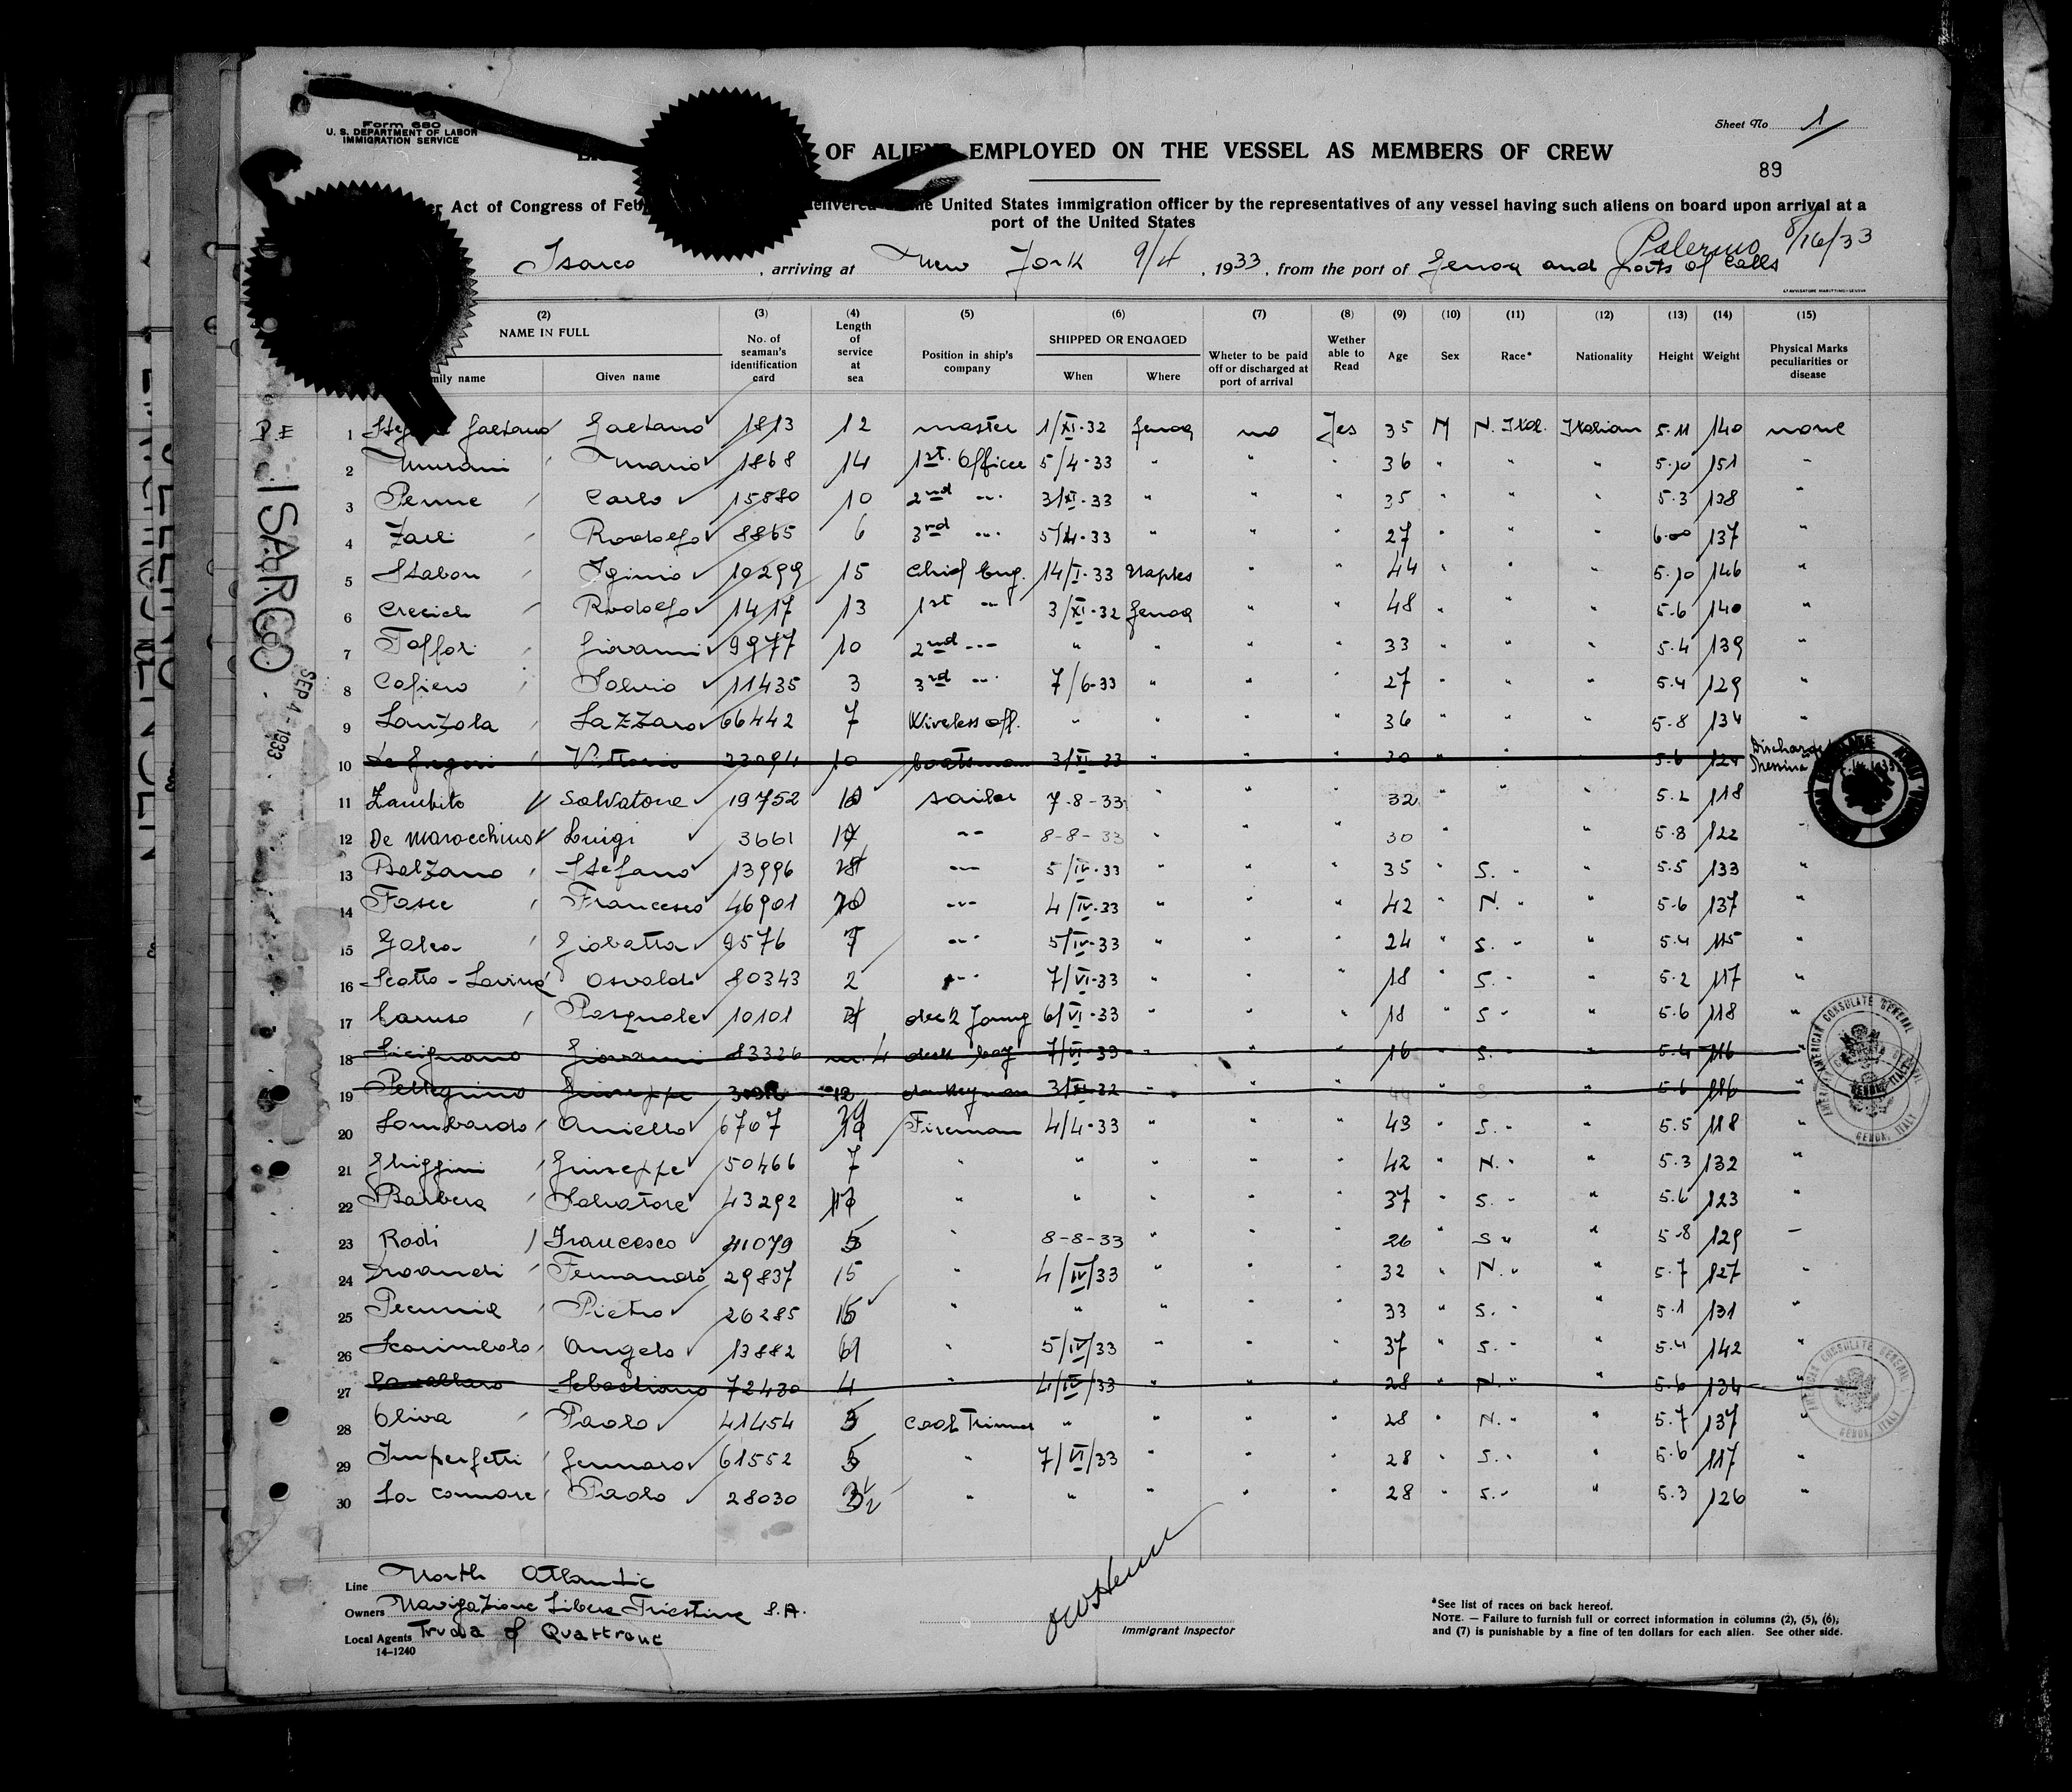 Form 680
U. S. DEPARTMENT OF LABOR
IMMIGRATION SERVICE
Sheet No 1
OF ALIENS EMPLOYED ON THE VESSEL AS MEMBERS OF CREW
89
Act of Congress of United States immigration officer by the representatives of any vessel having such aliens on board upon arrival at a
port of the United States
Palermo 8/16/33
Isarco, arriving at New York 9/4, 1933, from the port of Genoa and ports of calls
(2) (3) (4) (5) (6) (7) (8) (9) (10) (11) (12) (13) (14) (15)
NAME IN FULL No. of seaman's identification card Length of service at sea Position in ship's company SHIPPED OR ENGAGED Wheter to be paid off or discharged at port of arrival Wether able to Read Age Sex Race* Nationality Height Weight Physical Marks peculiarities or disease
name Given name When Where
1 Gaetano Gaetano 1813 12 master 1/XI-32 Genoa no Yes 35 M N. Ital. Italian 5.11 140 none
2 Murani Mario 1868 14 1st. Officer 5/4-33 " " " 36 " " " 5.10 151 "
3 Penne Carlo 15880 10 2nd " 3/XI-33 " " " 35 " " " 5.3 138 "
4 Rodolfo 8865 6 3rd " 33 " " " 27 " " " 6.00 137 "
5 Stabon Iginio 10299 15 Chief Eng. 14/I-33 Naples " " 44 " " " 5.10 146 "
6 Rodolfo 1417 13 1st " 3/XI-32 Genoa " " 48 " " " 5.6 140 "
7 Toffori Giovanni 9977 10 2nd " " " " " 33 " " " 5.4 139 "
8 Cafiero Salvio 11435 3 3rd " 7/6-33 " " " 27 " " " 5.4 129 "
9 Lanzola Lazzaro 66442 7 Wireless off. " " " " 36 " " " 5.8 134 "
10 De Gregori Vittorio 23094 10 boatsman 3/XI-33 " " " 30 " " " 5.6 124 Discharged Messina
11 Zambito Salvatore 19752 sailor 7-8-33 " " " 32 " " " 5.2 118
12 De Marocchino Luigi 3661 " 8-8-33 " " " 30 " " 5.8 122 "
13 Balzano Stefano 13996 " 5/IV-33 " " " 35 " S. " " 5.5 133 "
14 Fasce Francesco 46901 " 4/IV-33 " " " 42 " N. " " 5.6 137 "
15 Galea Giobatta 9576 7 " 5/IV-33 " " " 24 " S. " " 5.4 115 "
16 Scotto-Lavina Osvaldo 80343 2 " 7/VI-33 " " " 18 " S. " " 5.2 117 "
17 Caruso Pasquale 10101 deck young 6/VI-33 " " " 18 " S " " 5.6 118 "
18 Sicignano Giovanni 83326 m. 4 deck boy 7/VI-33 " " " 16 " S. " " 5.4 116 "
19 Pellegrino Giuseppe 12 donkeyman 3/XI-32 " " " " 5.6 116
20 Lombardo Aniello 6767 Fireman 4/4-33 " " " 43 " S. " " 5.5 118 "
21 Ghiggini Giuseppe 50466 7 " " " " " 42 " N. " " 5.3 132 "
22 Barbera Salvatore 43292 " " " " " 37 " S. " " 5.6 123 "
23 Rodi Francesco 41079 5 " 8-8-33 " " " 26 " S " " 5.8 129 –
24 Fernando 29837 15 " 4/IV/33 " " " 32 " N. " " 5.7 127 "
25 Pecunia Pietro 26285 " " " " " 33 " S. " " 5.1 131 "
26 Scarimbolo Angelo 13882 " 5/IV/33 " " " 37 " S. " " 5.4 142 "
27 Cavallaro Sebastiano 72430 4 " 4/IV/33 " " " 28 " N. " " 5.6 134 "
28 Oliva Paolo 41454 Coal Trimmer " " " " 28 " N. " " 5.7 137 "
29 Imperfetti Gennaro 61552 5 " 7/VI/33 " " " 28 " S. " " 5.6 117 "
30 La Commare Paolo 28030 " " " " " 28 " S. " " 5.3 126 "
ISARCO
SEP 4 - 1933
AMERICAN CONSULATE GENERAL
GENOA, ITALY
AMERICAN CONSULATE GENERAL
GENOA, ITALY
Line North Atlantic
Owners Navigazione Libera Triestina S.A.
Local Agents Truda of Quattrone
14-1240
Immigrant Inspector
*See list of races on back hereof.
NOTE. — Failure to furnish full or correct information in columns (2), (5), (6);
and (7) is punishable by a fine of ten dollars for each alien. See other side.